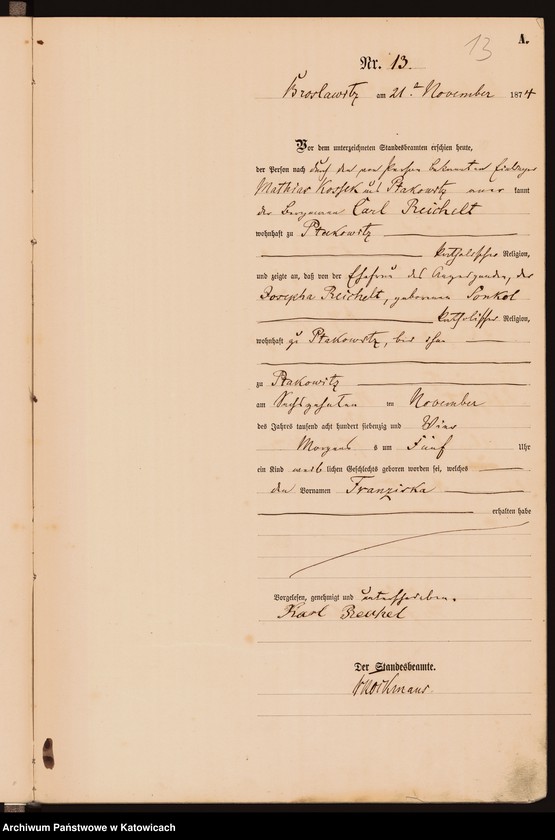 13
A.
Nr. 13.
Broslawitz am 21. November 1874
Vor dem unterzeichneten Standesbeamten erschien heute,
der Person nach durch den von Person bekannten Einlieger
Mathias Kossek aus Ptakowitz aner kannt
der Bergmann Carl Reichelt
wohnhaft zu Ptakowitz
katholischer Religion,
und zeigte an, daß von der Ehefrau des Anzeigenden, der
Josepha Reichelt, geborenen Sonkol
katholischer Religion,
wohnhaft zu Ptakowitz, bei ihm
zu Ptakowitz
am Sechszehnten ten November
des Jahres tausend acht hundert siebenzig und Vier
Morgens s um Fünf Uhr
ein Kind weib lichen Geschlechts geboren worden sei, welches
den Vornamen Franziska
erhalten habe
Vorgelesen, genehmigt und unterschrieben.
Karl
Der Standesbeamte.
Archiwum Państwowe w Katowicach